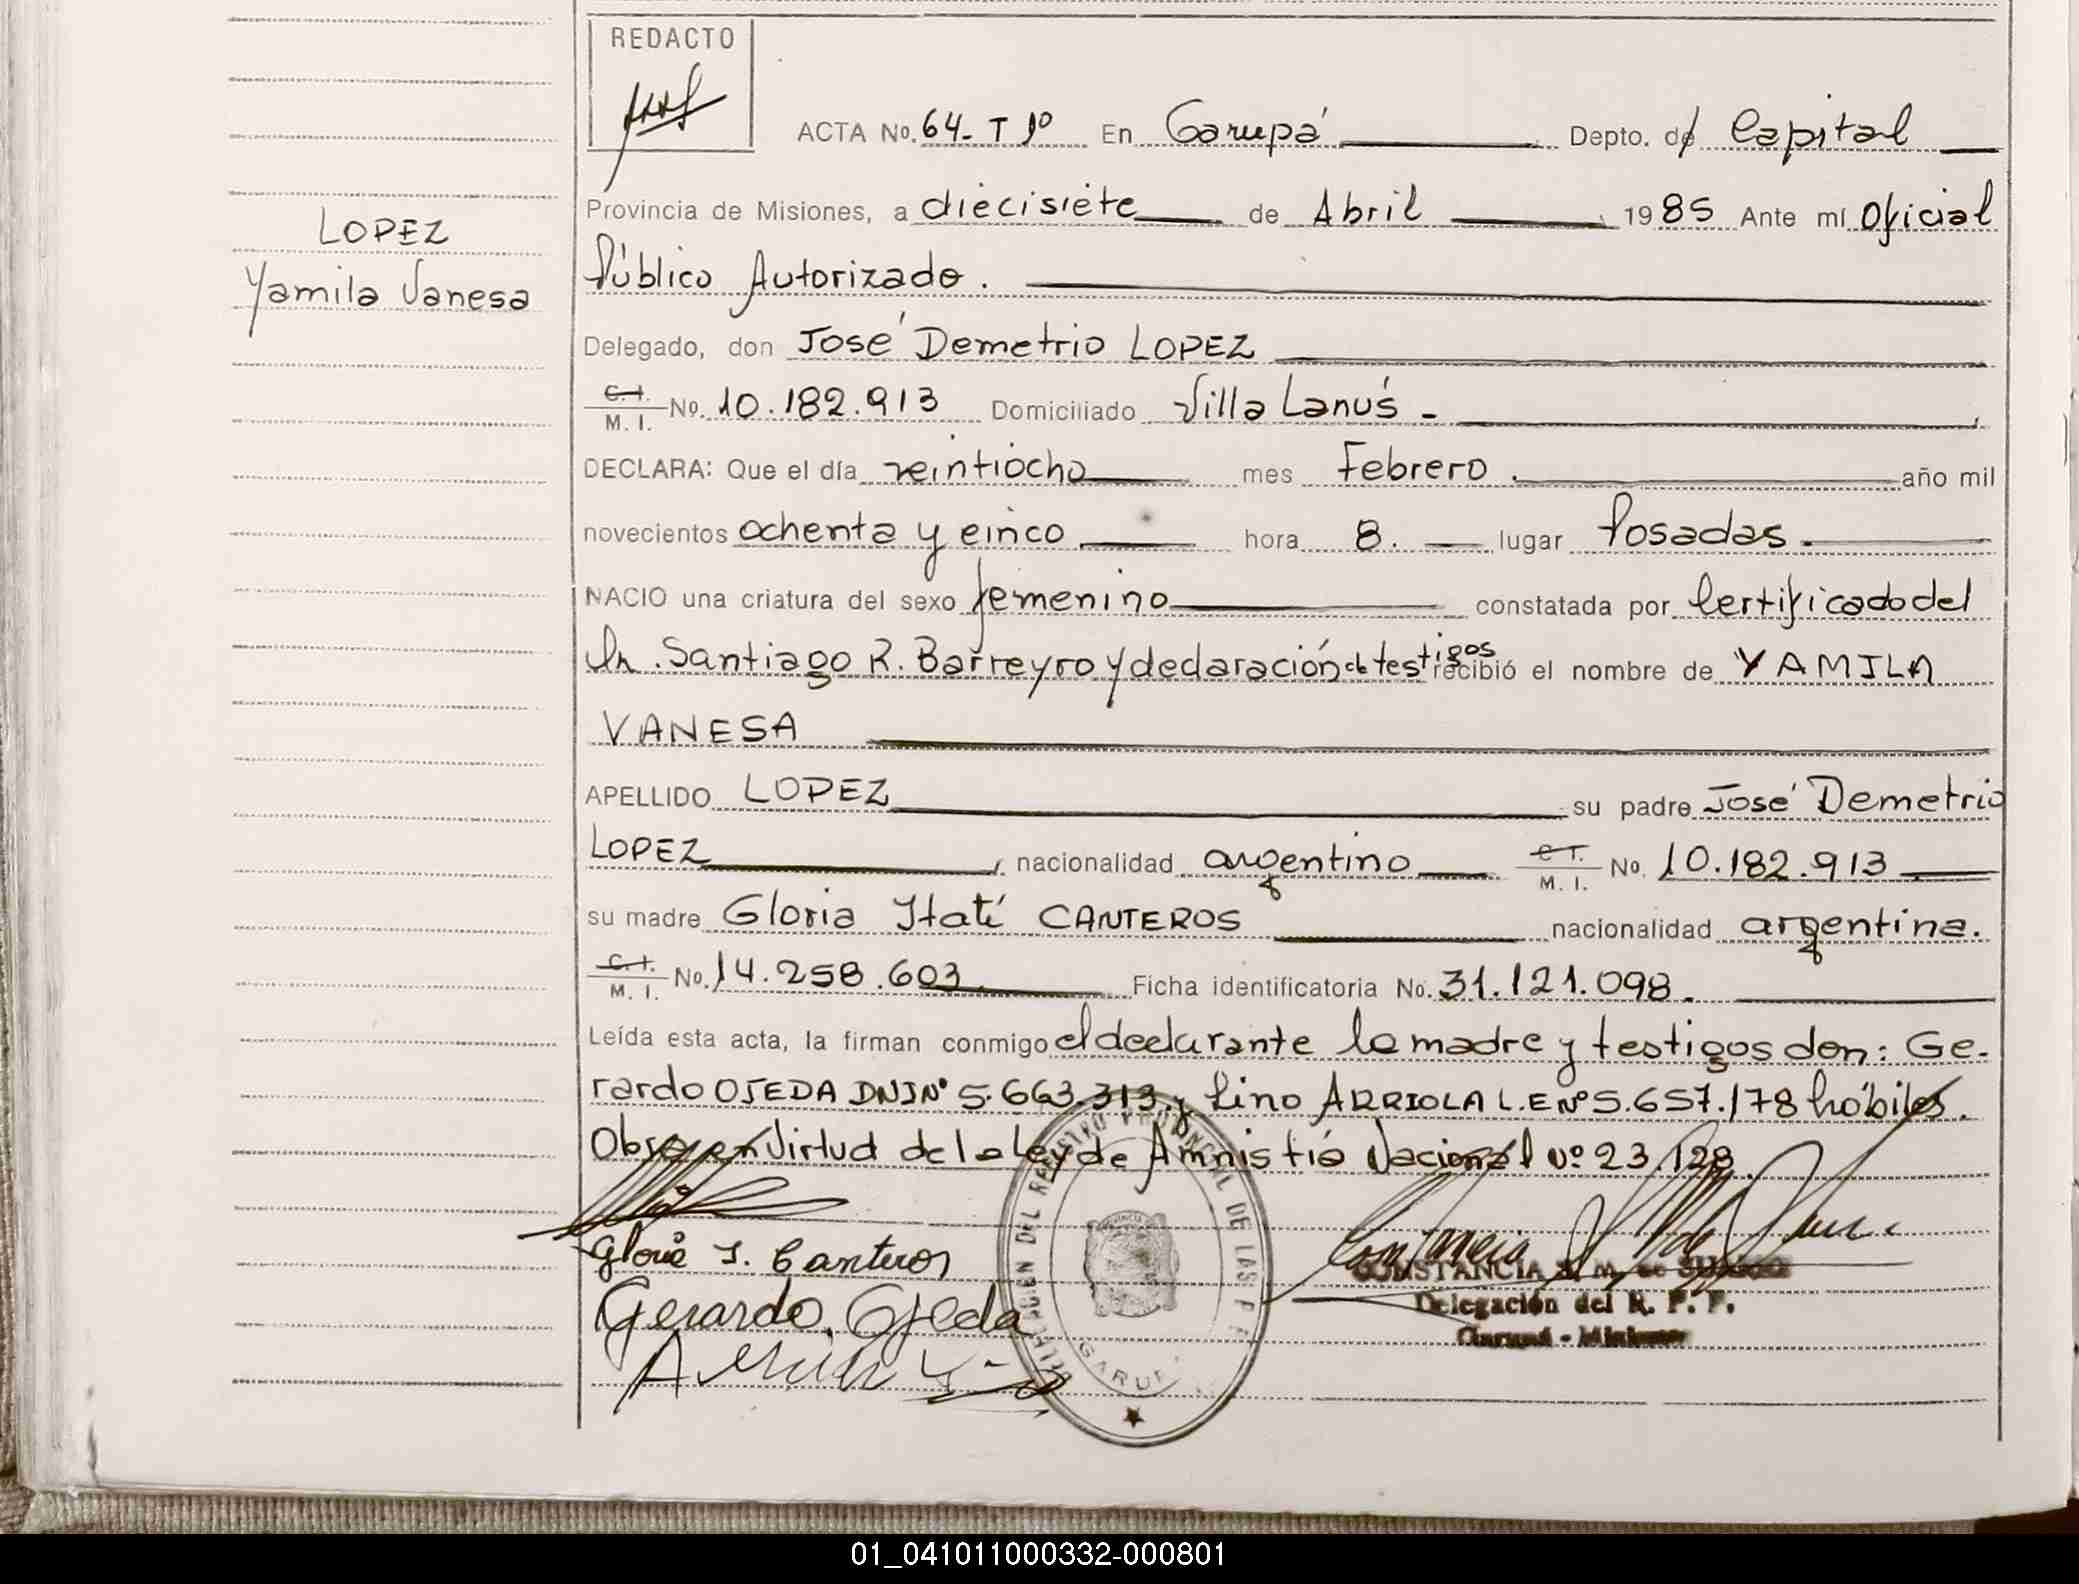 REDACTO
ACTA No. 64- T 1º En Garupá Depto. de Capital
Provincia de Misiones, a diecisiete de Abril 1985 Ante mí Oficial
LOPEZ
Público Autorizado.
Yamila Vanesa
Delegado, don José Demetrio LOPEZ
C. I. M. I. No. 10.182.913 Domiciliado Villa Lanús -
DECLARA: Que el día veintiocho mes Febrero . año mil
novecientos ochenta y cinco hora 8. lugar Posadas.
NACIO una criatura del sexo femenino constatada por Certificado del
Dr. Santiago R. Barreyro y declaración de testigos recibió el nombre de YAMILA
VANESA
APELLIDO LOPEZ su padre José Demetrio
LOPEZ nacionalidad argentino C I. M. I. No. 10.182.913
su madre Gloria Itatí CANTEROS nacionalidad argentina.
C. I. M. I. No. 14.258.603. Ficha identificatoria No. 31.121.098.
Leída esta acta, la firman conmigo el declarante la madre y testigos don: Ge-
rardo OJEDA DNI Nº 5.663.313 y Lino ARRIOLA L.E Nº 5.657.178 hábiles.
Obs: en Virtud de la Ley de Amnistía Nacional Nº 23.128
Gloria I. Canteros
Gerardo Ojeda
DELEGACION DEL REGISTRO PROVINCIAL DE LAS P F
GARUP
CONSTANCIA
Delegación del R. P. P.
Garupá - Misiones
01_041011000332-000801